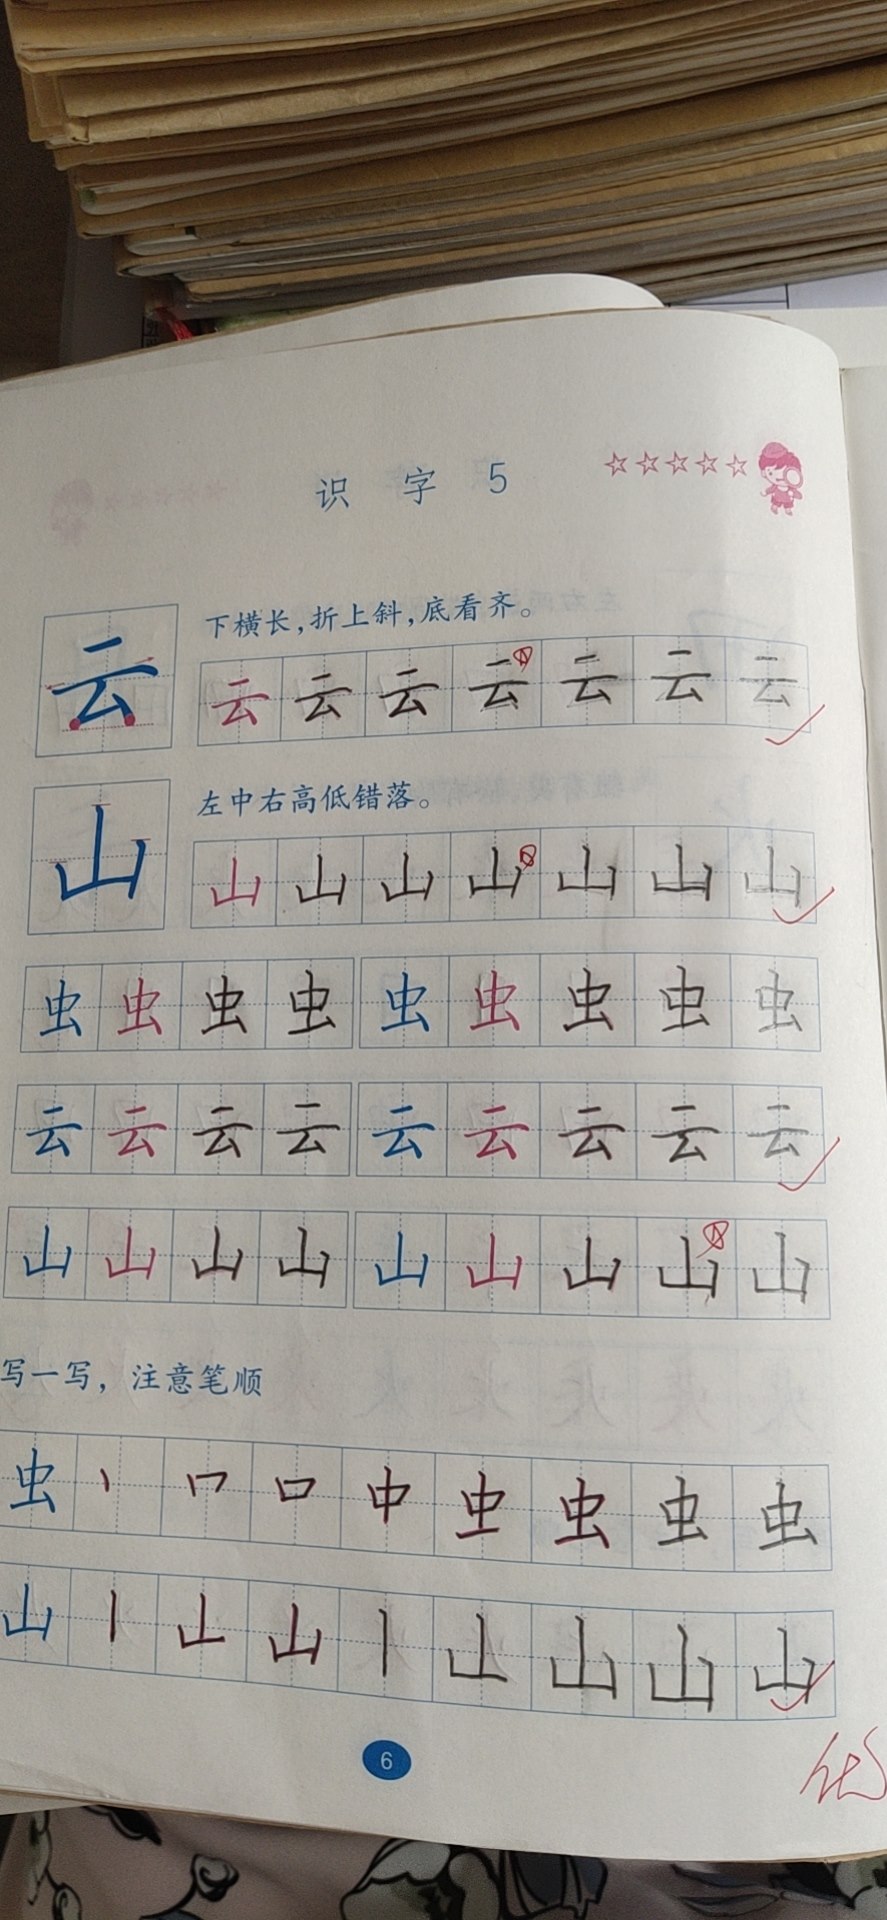 识字5
下横长，折上斜，底看齐。
云云云云云云云云
左中右高低错落。
山山山山山山山山
虫虫虫虫虫虫虫虫虫
云云云云云云云云云
山山山山山山山山山
写一写，注意笔顺
虫丶口中虫虫虫虫
山丨山丨山山山
6